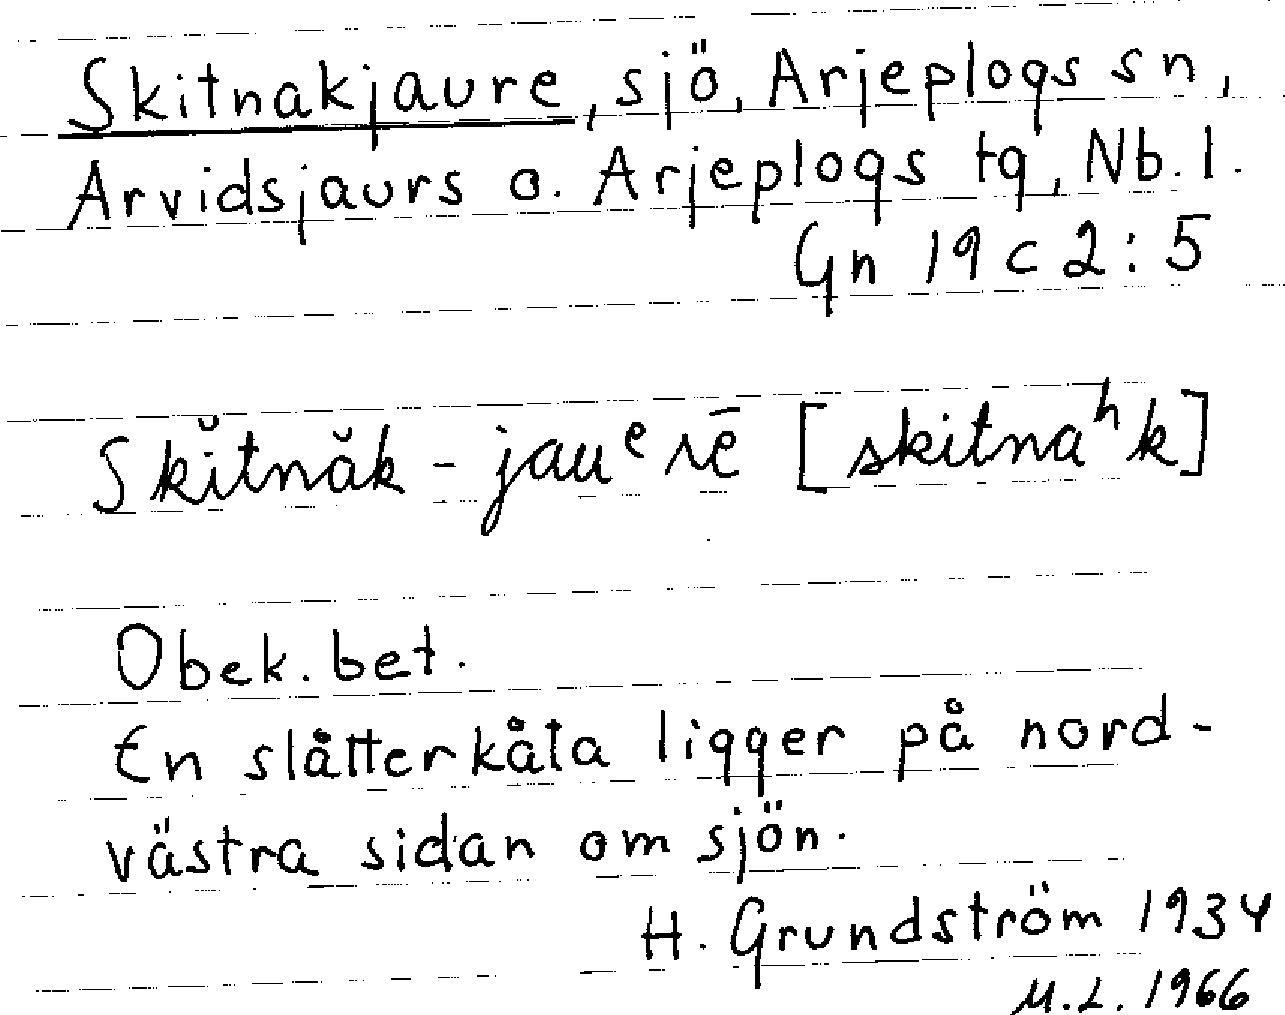 Skitnakjaure, sjö, Arjeplogs sn,
Arvidsjaurs o. Arjeplogs tg, Nb.l.
Gn 19 c 2:5
Skĭtnăk-jauᵉrē [skitnaʰk]
Obek. bet.
En slåtterkåta ligger på nord-
västra sidan om sjön.
H. Grundström 1934
M.L. 1966